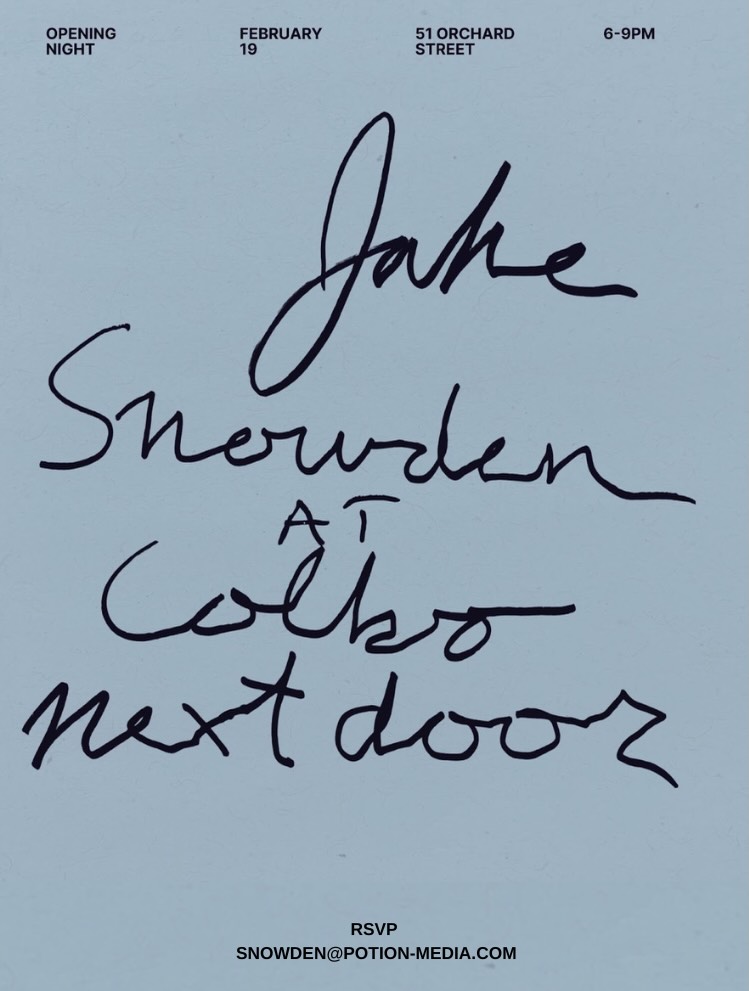 OPENING NIGHT
FEBRUARY 19
51 ORCHARD STREET
6-9PM
Jake
Snowden
AT
Colbo
next door
RSVP
SNOWDEN@POTION-MEDIA.COM